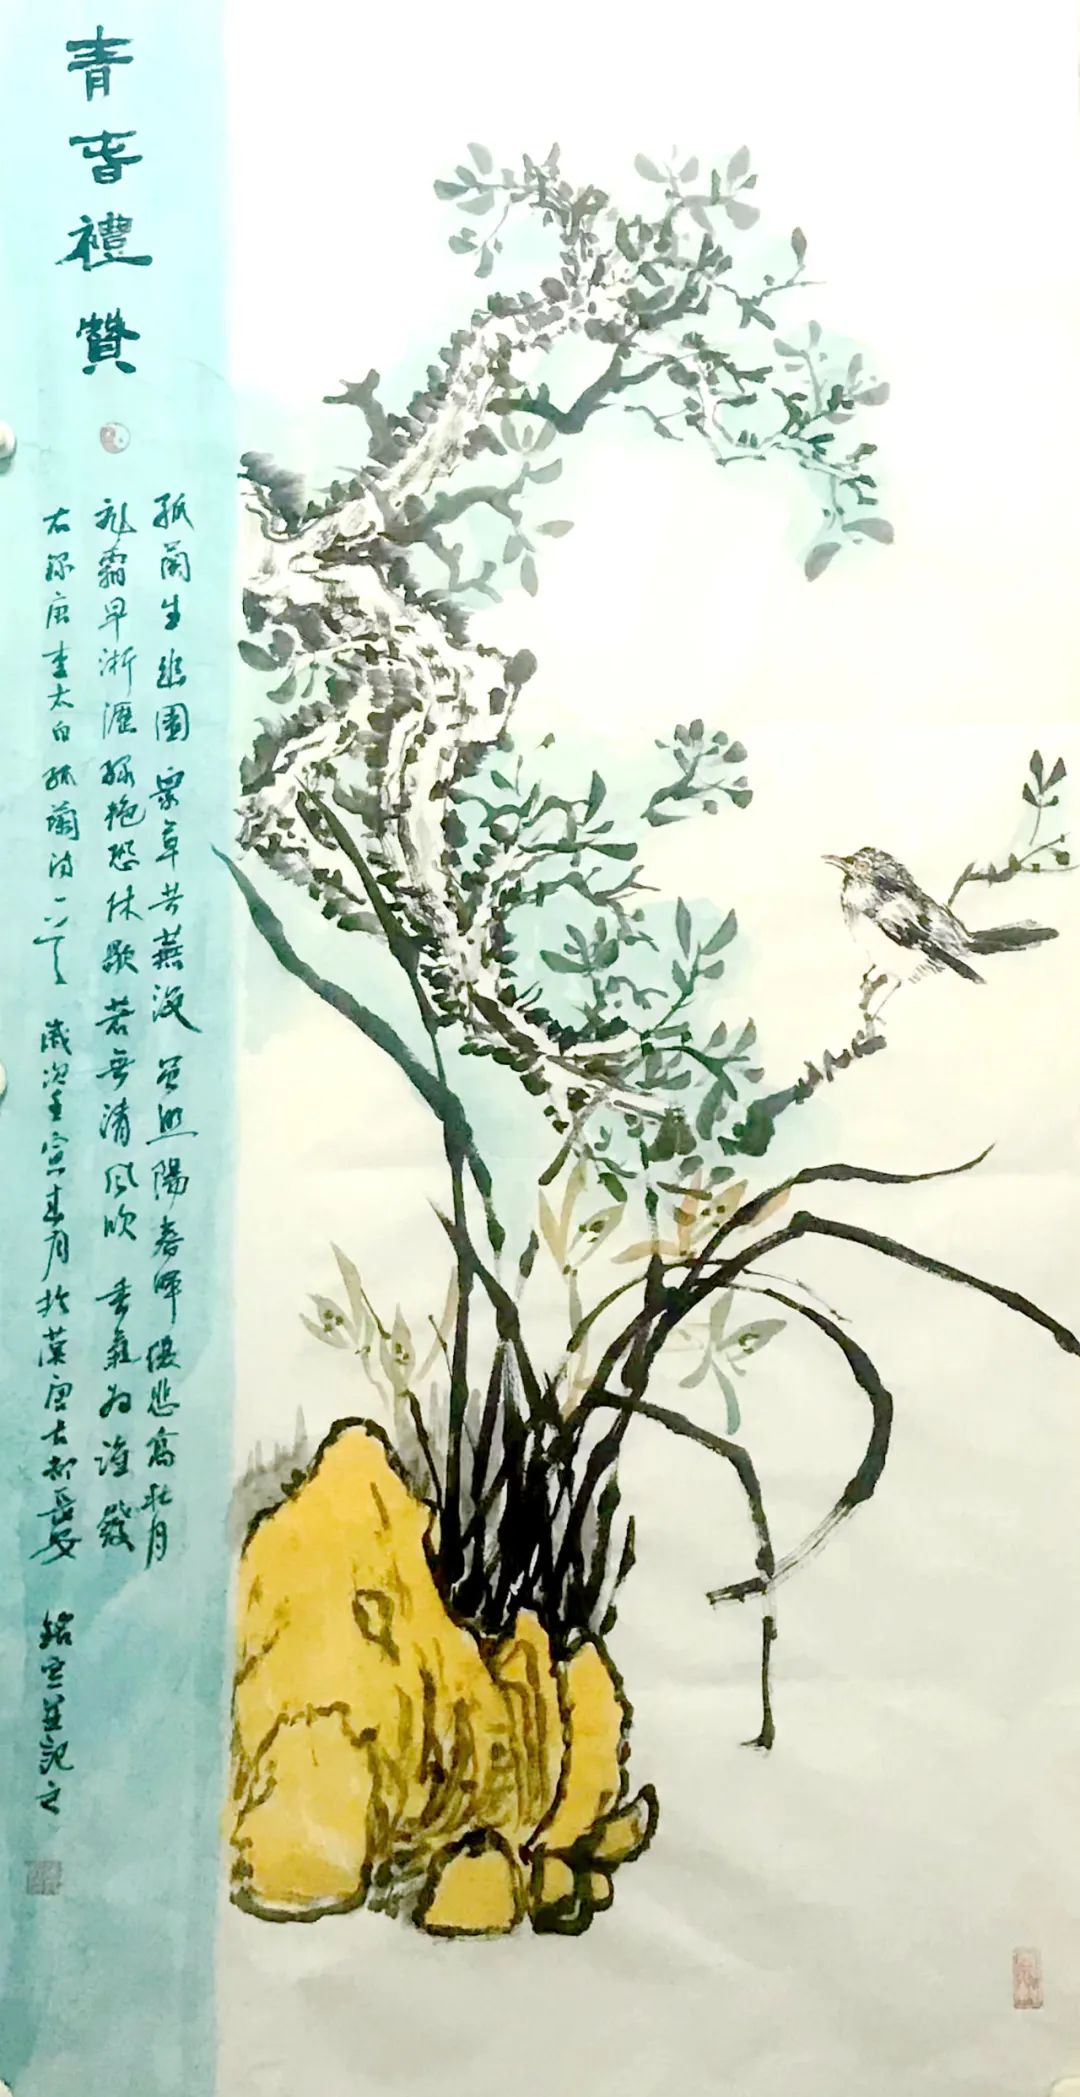 青春禮贊
孤蘭生幽園 眾草共蕪沒 雖照陽春暉 復悲高秋月
飛霜早淅瀝 綠艷恐休歇 若無清風吹 香氣為誰發
右錄唐李太白孤蘭詩一首 歲次壬寅 月於漢唐古都長安 銘 並記之